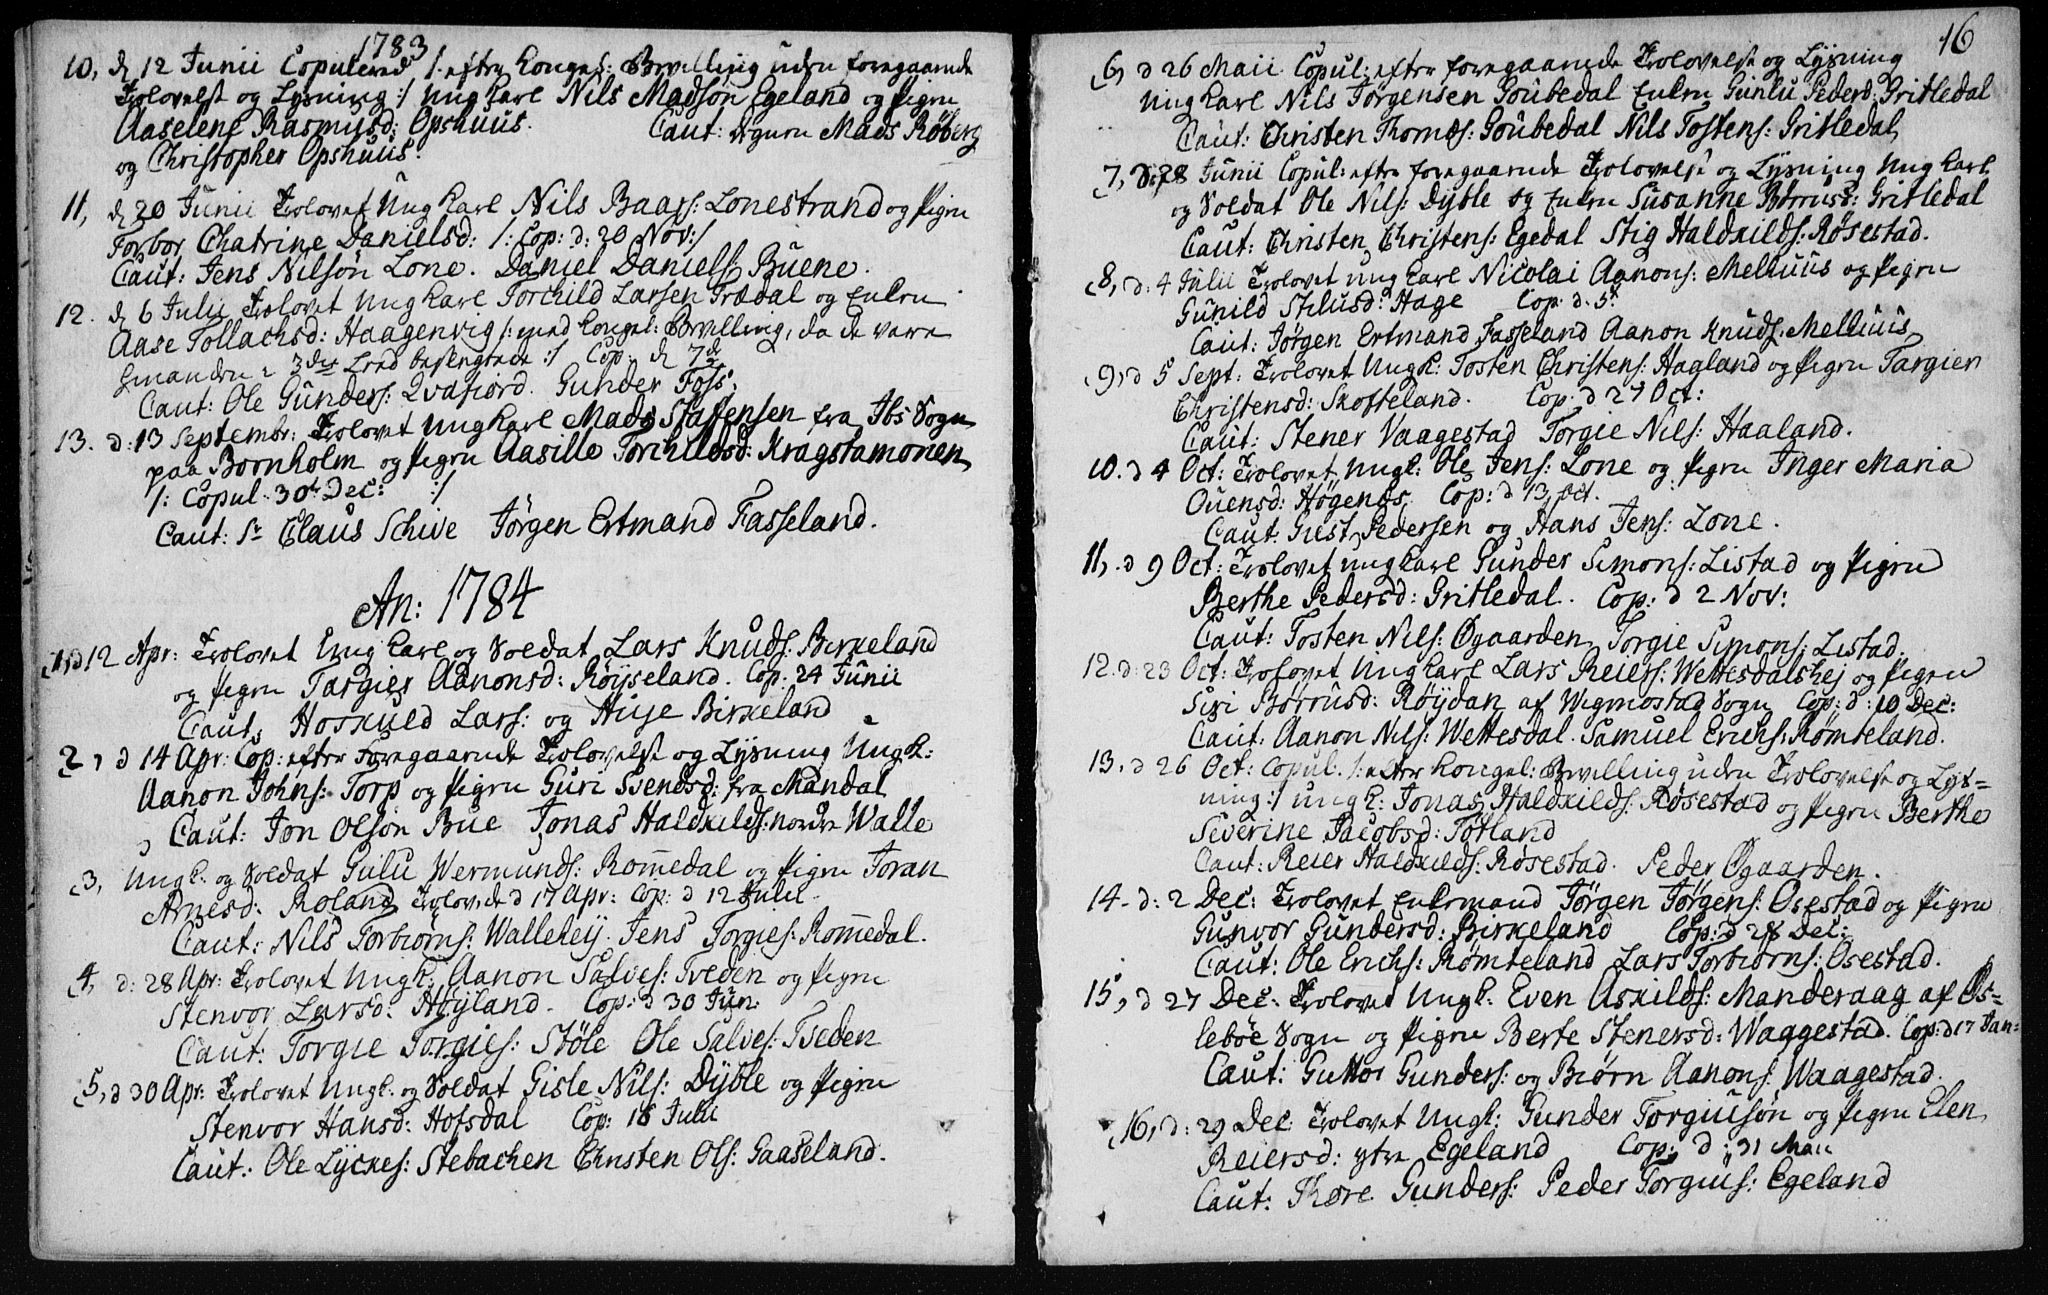 1783
10, d 12 Junii Copulered /: efter Kongel: Bevilling uden foregaaende
Trolovelse og Lysning :/ Ung Karl Nils Madsøn Egeland og Pigen
Aaselene Rasmusd: Opshuus. Caut: Mads Røberg
og Christopher Opshuus.
11, d 20 Junii Trolovet Ung Karl Nils Baars: Lonestrand og Pigen
Torbor Chatrine Danielsd: /: Cop: d: 20 Nov: /
Caut: Jens Nilsøn Lone. Daniel Daniels: Buene.
12. d 6 Julii Trolovet Ung Karl Torchild Larsen Trædal og Enken
Aase Tollachsd: Haagenvig /: med Kongel: Bevilling, da de vare
hinanden i 3die Leed besvogrede :/ Cop: d 7de
Caut: Ole Gunders: Qvafiord. Gunder Foss.
13. d: 13 Septembr: Trolovet Ung Karl Mads Staffensen fra Ibs Sogn
paa Bornholm og Pigen Aasille Torchildsd: Kragstamonen
/: Copul. 30t Dec: :/
Caut: Sr Claus Schive Jørgen Ertmand Fasseland.
An: 1784
1, d 12 Apr: Trolovet Ung Karl og Soldat Lars Knuds: Birkeland
og Pigen Targier Aanonsd: Røyseland. Cop. 24 Junii
Caut, Hoskuld Lars: og Huje Birkeland
2, d 14 Apr: Cop: efter Foregaaende Trolovelse og Lysning Ungk:
Aanon Johns: Torp og Pigen Guri Svendsd: fra Mandal
Caut: Jon Olsøn Bue Jonas Haldkilds: nordre Walle
3, Ungk. og Soldat Gulu Wermunds: Romedal og Pigen Joran
Arnesd: Roland Trolovede d 17 Apr: Cop: d 12 Julii
Caut: Nils Torbiørns: Wallehey. Jens Torgies: Romedal.
4, d: 28 Apr: Trolovet Ungk: Aanon Salves: Tveden og Pigen
Stenvor Larsd: Høyland. Cop: d 30 Jun:
Caut: Torgie Torgies: Støle Ole Salves: Tveden
5, d 30 Apr: Trolovet Ungk. og Soldat Gisle Nils: Dyble og Pigen
Stenvor Hansd: Hofsdal Cop: 18 Julii
Caut: Ole Lyckes: Stebachen Christen Ols: Gaaseland.
16
6, d 26 Maii Copul: efter foregaaende Trolovelse og Lysning
Ung Karl Nils Jørgensen Goubedal Enken Gunlu Pedersd: Gritledal
Caut: Christen Thomæs: Goubedal Nils Tostens: Gritledal
7, d: 28 Junii Copul: efter foregaaende Trolovelse og Lysning Ung Karl
og Soldat Ole Nils: Dyble og Enken Susanne Børrusd: Gritledal
Caut: Christen Christens: Egedal Stig Haldkilds: Røsestad.
8, d: 4 Julii Trolovet Ung Karl Nicolai Aanons: Melhuus og Pigen
Gunild Stilusd: Hage Cop: d. 5t
Caut: Jørgen Ertmand Fasseland Aanon Knuds: Melhuus
9, d 5 Sept: Trolovet Ungk: Tosten Christens: Hagland og Pigen Targier
Christensd: Skofteland. Cop: d 27 Oct:
Caut: Stener Vaagestad Torgie Nils: Haaland.
10. d 4 Oct: Trolovet Ungk: Ole Jens: Lone og Pigen Inger Maria
Ouensd: Høgenæs. Cop: d 13 Oct.
Caut: Giest Pedersen og Hans Jens: Lone.
11, d 9 Oct: Trolovet Ung Karl Gunder Simons: Listad og Pigen
Berthe Pedersd: Gritledal. Cop: d 2 Nov:
Caut: Tosten Nils: Øgaarden Torgie Simons: Listad.
12. d: 23 Oct: Trolovet Ung Karl Lars Reiers: Wettesdalshej og Pigen
Siri Børrusd: Røydan af Wigmostad Sogn Cop: d: 10 Dec:
Caut: Aanon Nils: Wettesdal. Samuel Erichs: Rømteland.
13, d 26 Oct: Copul. /: efter Kongel: Bevilling uden Trolovelse og Lys=
ning :/ Ungk: Jonas Haldkilds: Røsestad og Pigen Berthe
Severine Jacobsd: Føtland
Caut: Reier Haldkilds: Røsestad. Peder Øgaarden.
14. d: 2 Dec: Trolovet Enkemand Jørgen Jørgens: Osestad og Pigen
Gunvor Gundersd: Birkeland Cop: d 28 Dec:
Caut: Ole Erichs: Rømteland Lars Torbiørns: Osestad.
15, d 27 Dec: Trolovet Ungk: Even Askilds: Manderaag af Øs=
lebøe Sogn og Pigen Berte Stenersd: Waagestad. Cop: d 17 Jan:
Caut: Guttor Gunders: og Biørn Aanons: Waagestad.
16, d: 29 Dec: Trolovet Ungk: Gunder Torgiusøn og Pigen Elen
Reiersd: ytre Egeland Cop: d: 31 Maii
Caut: Thore Gunders: Peder Torgius: Egeland